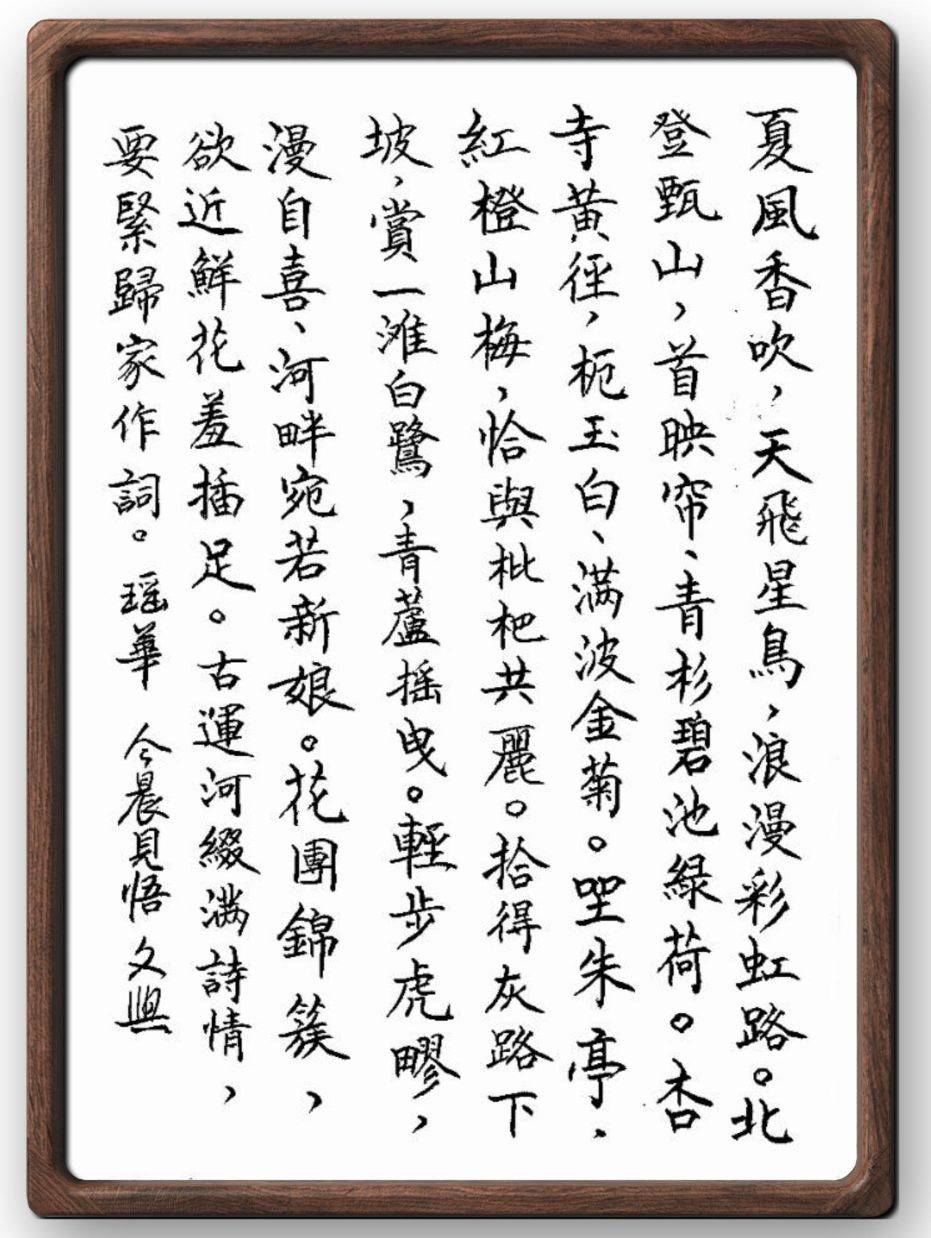 夏風香吹，天飛星鳥，浪漫彩虹路。北
登甄山，首映帘、青杉碧池綠荷。杏
寺黃徑，栀玉白、满波金菊。坐朱亭，
紅橙山梅，恰與枇杷共麗。拾得灰路下
坡，賞一滩白鷺，青蘆摇曳。輕步虎疁，
漫自喜、河畔宛若新娘。花團錦簇，
欲近鮮花羞插足。古運河綴满詩情，
要緊歸家作詞。瑶華 今晨見悟文興